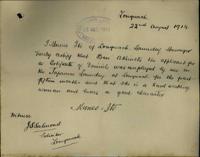 Longreach
22nd August 1914
I Manee Ito of Longreach Laundry Manager
hereby certify that Eoon Akimotto the applicant for
a Certificate of Domicile was employed by me in
the Japanese Laundry at Longreach for the past
fifteen months and that she is a hard working
woman and bears a good character
Manee Ito
Witness
Solicitor
Longreach